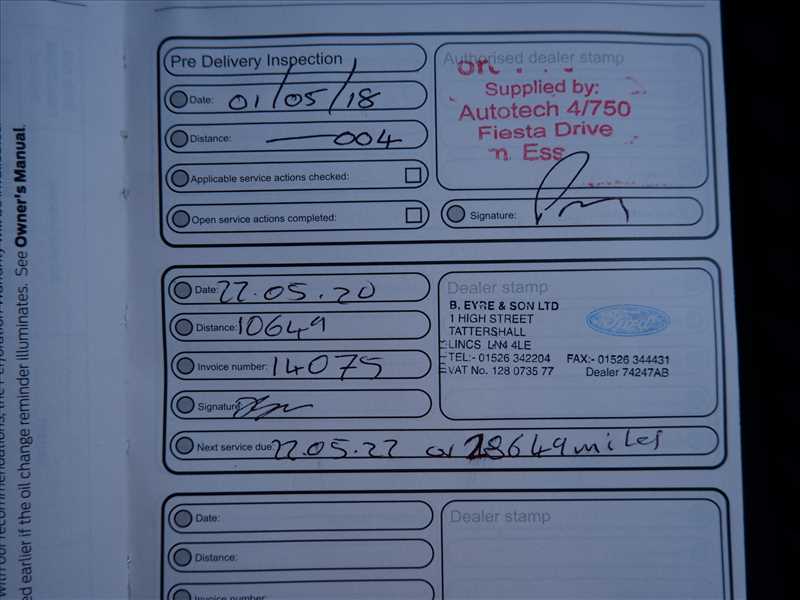 Pre Delivery Inspection
Date: 01/05/18
Distance: —004
Applicable service actions checked:
Open service actions completed:
Authorised dealer stamp
Supplied by:
Autotech 4/750
Fiesta Drive
Ess
Signature:
Date: 22.05.20
Distance: 10649
Invoice number: 14075
Signature:
Next service due: 22.05.22 or 28649 miles
Dealer stamp
B. EYRE & SON LTD
1 HIGH STREET
TATTERSHALL
LINCS LN4 4LE
TEL:- 01526 342204 FAX:- 01526 344431
VAT No. 128 0735 77 Dealer 74247AB
Ford
Date:
Distance:
Invoice number:
Dealer stamp
ed earlier if the oil change reminder illuminates. See Owner's Manual.